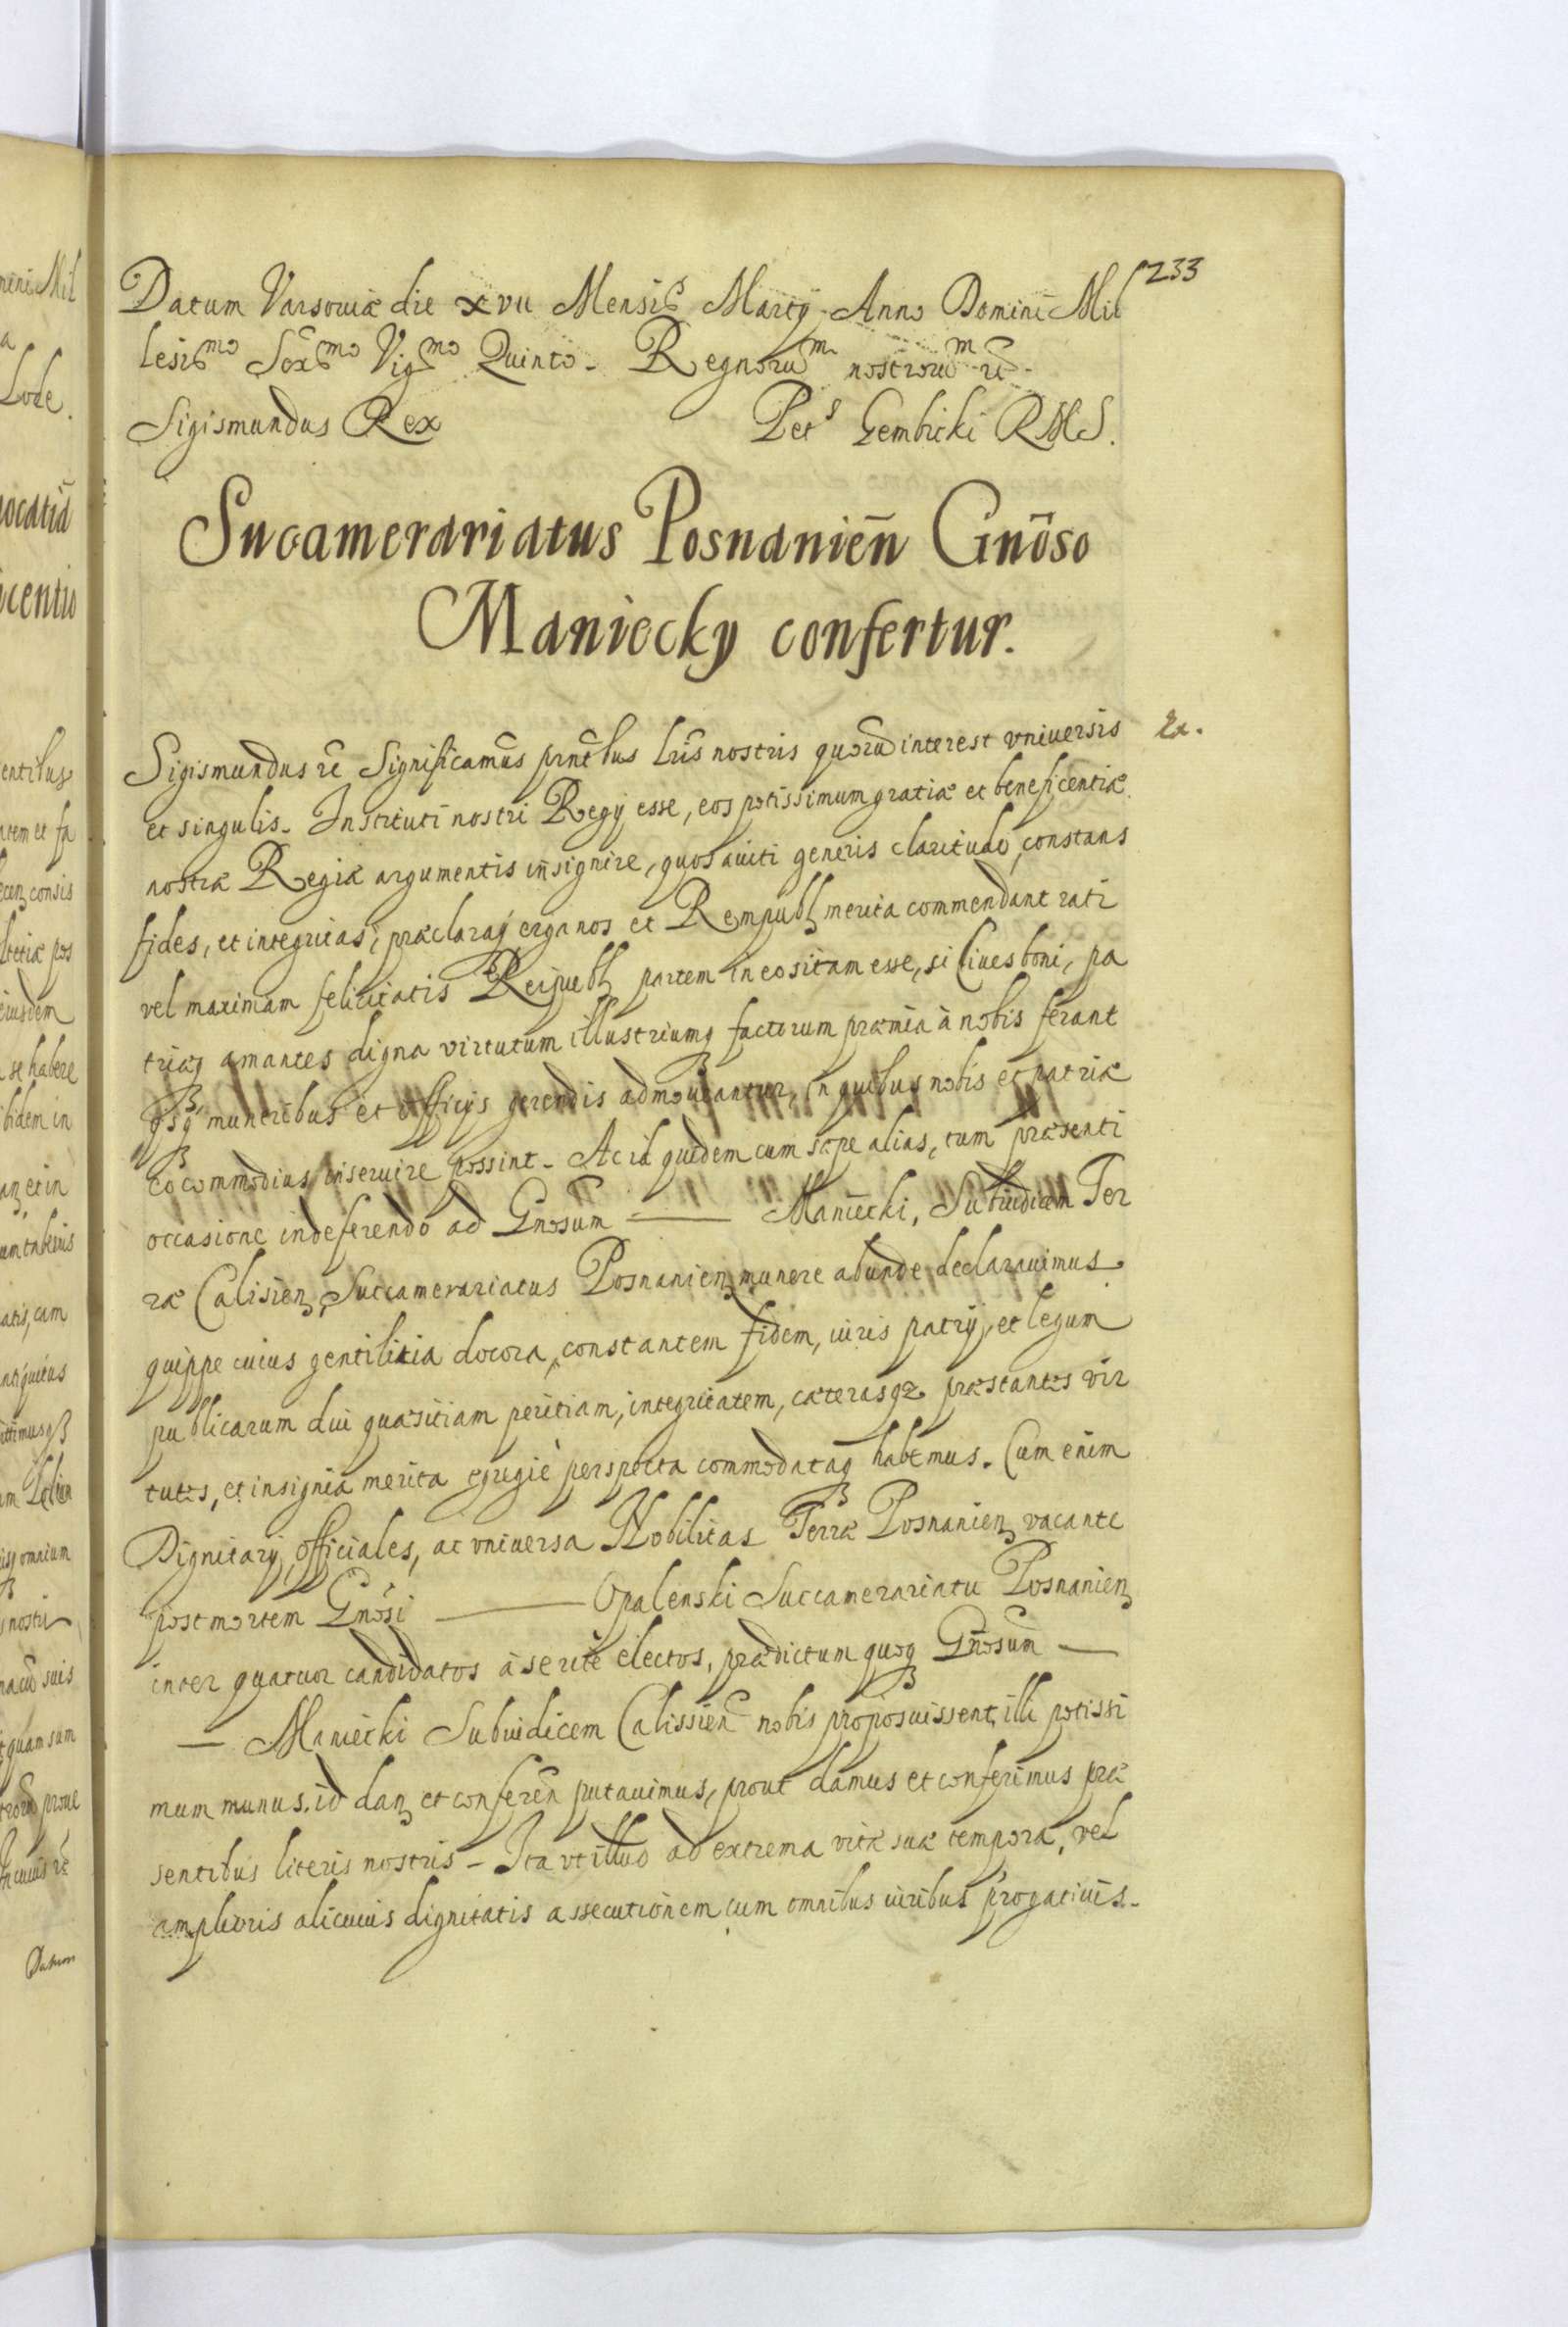 233
Datum Varsoviæ die xvii Mensis Martij Anno Domini Mil
lesimo Sexmo Vigmo Quinto. Regnorum nostrorum etc̃
Sigismundus Rex Pets Gembicki RMS.
Succamerariatus Posnanien̄ Gnōso
Maniecky confertur.
Sigismundus etc̃ Significamus prñtbus Lr̃is nostris quorũ interest vniuersis
Ex.
et singulis. Instituti nostri Regij esse, eos potissimum gratiæ et beneficentiæ
nostræ Regiæ argumentis insignire, quos auiti generis claritudo, constans
fides, et integritas, præclaraq̃ erga nos et Rempubl̃ merita commendant rati
vel maximam felicitatis Reipubl̃ partem in eo sitam esse, si Ciues boni, pa
triæq̃ amantes digna virtutum illustriumq̃ factorum præmia à nobis ferant
ijsq̃ muneribus et officijs gerendis admoueantur, in quibus nobis et patriæ
eo commodius inseruire possint. Ac id quidem cum sæpe alias, tum præsenti
occasione in deferendo ad Gnosum —— Maniecki, Subiudicem Ter
ræ Calisien̄ Succamerariatus Posnanien̄ munere abunde declarauimus
quippe cuius gentilitia decora, constantem fidem, iuris patrij, et legum
publicarum diu quæsitiam peritiam, integritatem, cæterasq̃ præstantes vir
tutes, et insignia merita egregiè perspecta commodataq̃ habemus. Cum enim
Dignitarij, officiales, ac vniuersa Nobilitas Terræ Posnanien̄ vacante
post mortem Gnosi —— Opalenski Succamerariatu Posnanien̄
inter quatuor candidatos à se ritè electos, prædictum quoq̃ Gnosum —
— Maniecki Subiudicem Calissien̄ nobis proposuissent, illi potissi
mum munus id dan̄ et conferen̄ putauimus, prout damus et conferimus præ
sentibus literis nostris. Ita vt illud ad extrema vitæ suæ tempora, vel
amplioris alicuius dignitatis assecutionem cum omnibus iuribus progatiuis.